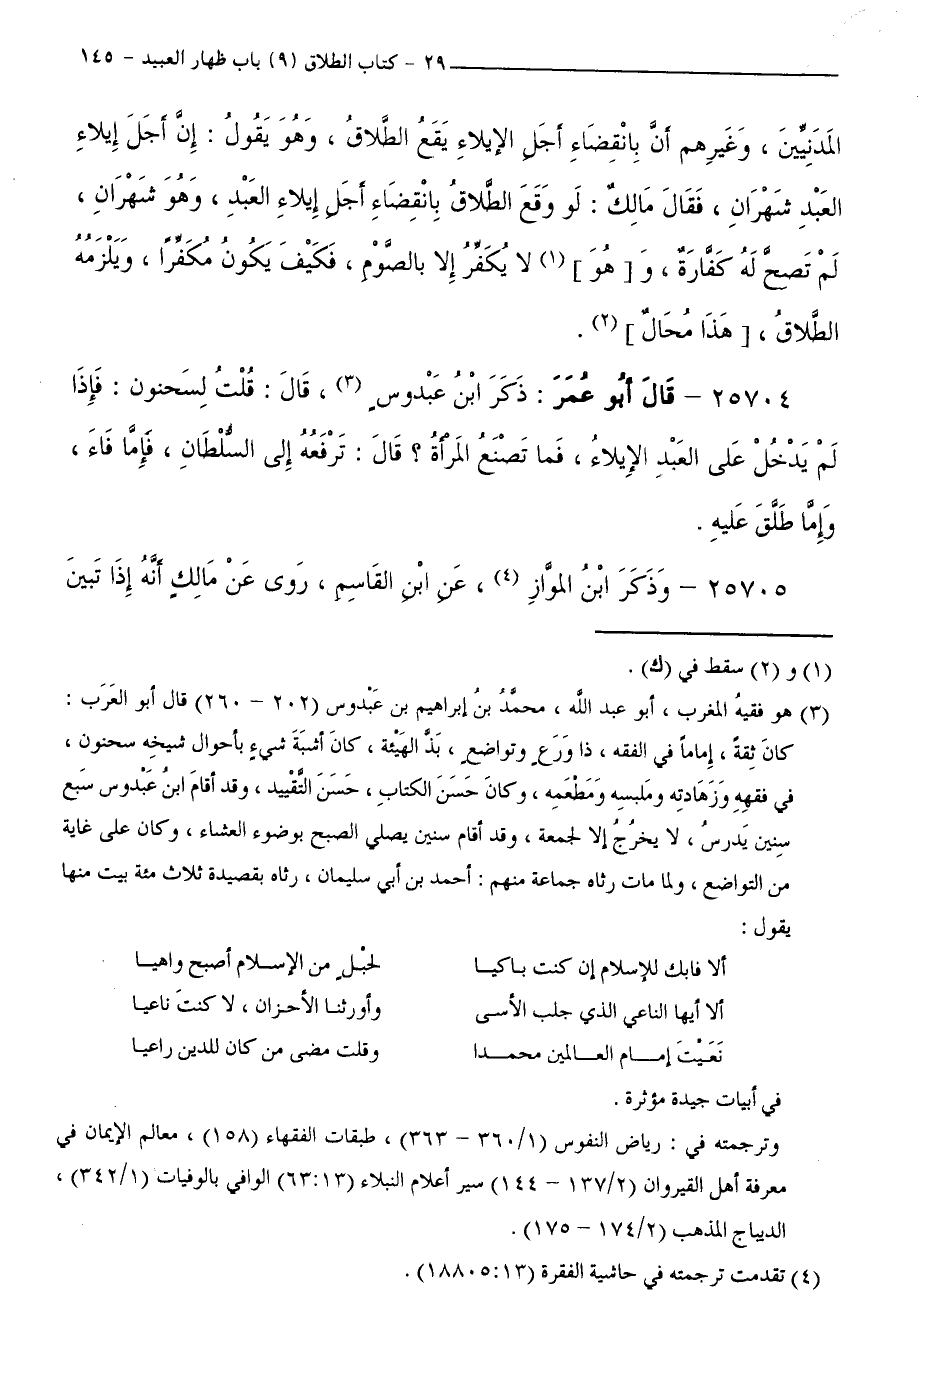 ٢٩ - كتاب الطلاق (٩) باب ظهار العبيد - ١٤٥
المَدَنِيِّينَ ، وَغَيرِهم أَنَّ بِانْقِضَاءِ أَجَلِ الإيلاءِ يَقَعُ الطَّلاقُ ، وَهُوَ يَقُولُ : إِنَّ أَجَلَ إِيلاءِ
العَبْدِ شَهْرَانِ ، فَقَالَ مَالِكٌ : لَو وَقَعَ الطَّلاقُ بِانْقِضَاءِ أَجَلِ إِيلاءِ العَبْدِ ، وَهُوَ شَهْرَانِ ،
لَمْ تَصحَّ لَهُ كَفَّارَةٌ ، وَ [ هُوَ ] (١) لا يُكَفِّرُ إلا بالصَّوْمِ ، فَكَيْفَ يَكُونُ مُكَفِّرًا ، وَيَلْزَمُهُ
الطَّلاقُ ، [ هَذَا مُحَالٌ ] (٢) .
٢٥٧٠٤ - قَالَ أَبُو عُمَرَ : ذَكَرَ ابْنُ عَبْدوسٍ (٣) ، قَالَ : قُلْتُ لِسَحنون : فَإِذَا
لَمْ يَدْخُلْ عَلى العَبْدِ الإيلاءُ ، فَما تَصنَعُ المَرْأَةُ ؟ قَالَ : تَرْفَعُهُ إلى السُّلْطَانِ ، فَإِمَّا فَاءَ ،
وَإِمَّا طَلَّقَ عَليهِ .
٢٥٧٠٥ - وَذَكَرَ ابْنُ الموَّازِ (٤) ، عَنِ ابْنِ القَاسِمِ ، رَوى عَنْ مَالِكٍ أَنَّهُ إِذَا تَبينَ
(١) و (٢) سقط في (ك) .
(٣) هو فقيهُ المغرب ، أبو عبد الله ، محمَّدُ بنُ إبراهيم بن عَبْدوس (٢٠٢ - ٢٦٠) قال أبو العَرَب :
كانَ ثقةً ، إماماً في الفقه ، ذا وَرَعٍ وتواضعٍ ، بَذَّ الهَيْئة ، كانَ أشبَهَ شيءٍ بأحوال شيخِه سحنون ،
في فقههِ وزَهَادتِه ومَلبسِه ومَطْعَمِه ، وكانَ حَسَنَ الكتابِ ، حَسَنَ التَّقْييد ، وقد أقامَ ابنُ عَبْدوس سَبع
سِنِين يَدرسُ ، لا يخرُجُ إلا لجمعة ، وقد أقام سنين يصلي الصبح بوضوء العشاء ، وكان على غاية
من التواضع ، ولما مات رثاه جماعة منهم : أحمد بن أبي سليمان ، رثاه بقصيدة ثلاث مئة بيت منها
يقول :
ألا فابك للإسلام إن كنت باكيا لحَبْلٍ من الإسلام أصبح واهيا
ألا أيها الناعي الذي جلب الأسى وأورثنا الأحزان ، لا كنتَ ناعيا
نَعَيْتَ إمام العالمين محمدا وقلت مضى من كان للدين راعيا
في أبيات جيدة مؤثرة .
وترجمته في : رياض النفوس (٣٦٠/١ - ٣٦٣) ، طبقات الفقهاء (١٥٨) ، معالم الإيمان في
معرفة أهل القيروان (١٣٧/٢ - ١٤٤) سير أعلام النبلاء (٦٣:١٣) الوافي بالوفيات (٣٤٢/١) ،
الديباج المذهب (١٧٤/٢ - ١٧٥) .
(٤) تقدمت ترجمته في حاشية الفقرة (١٨٨٠٥:١٣) .